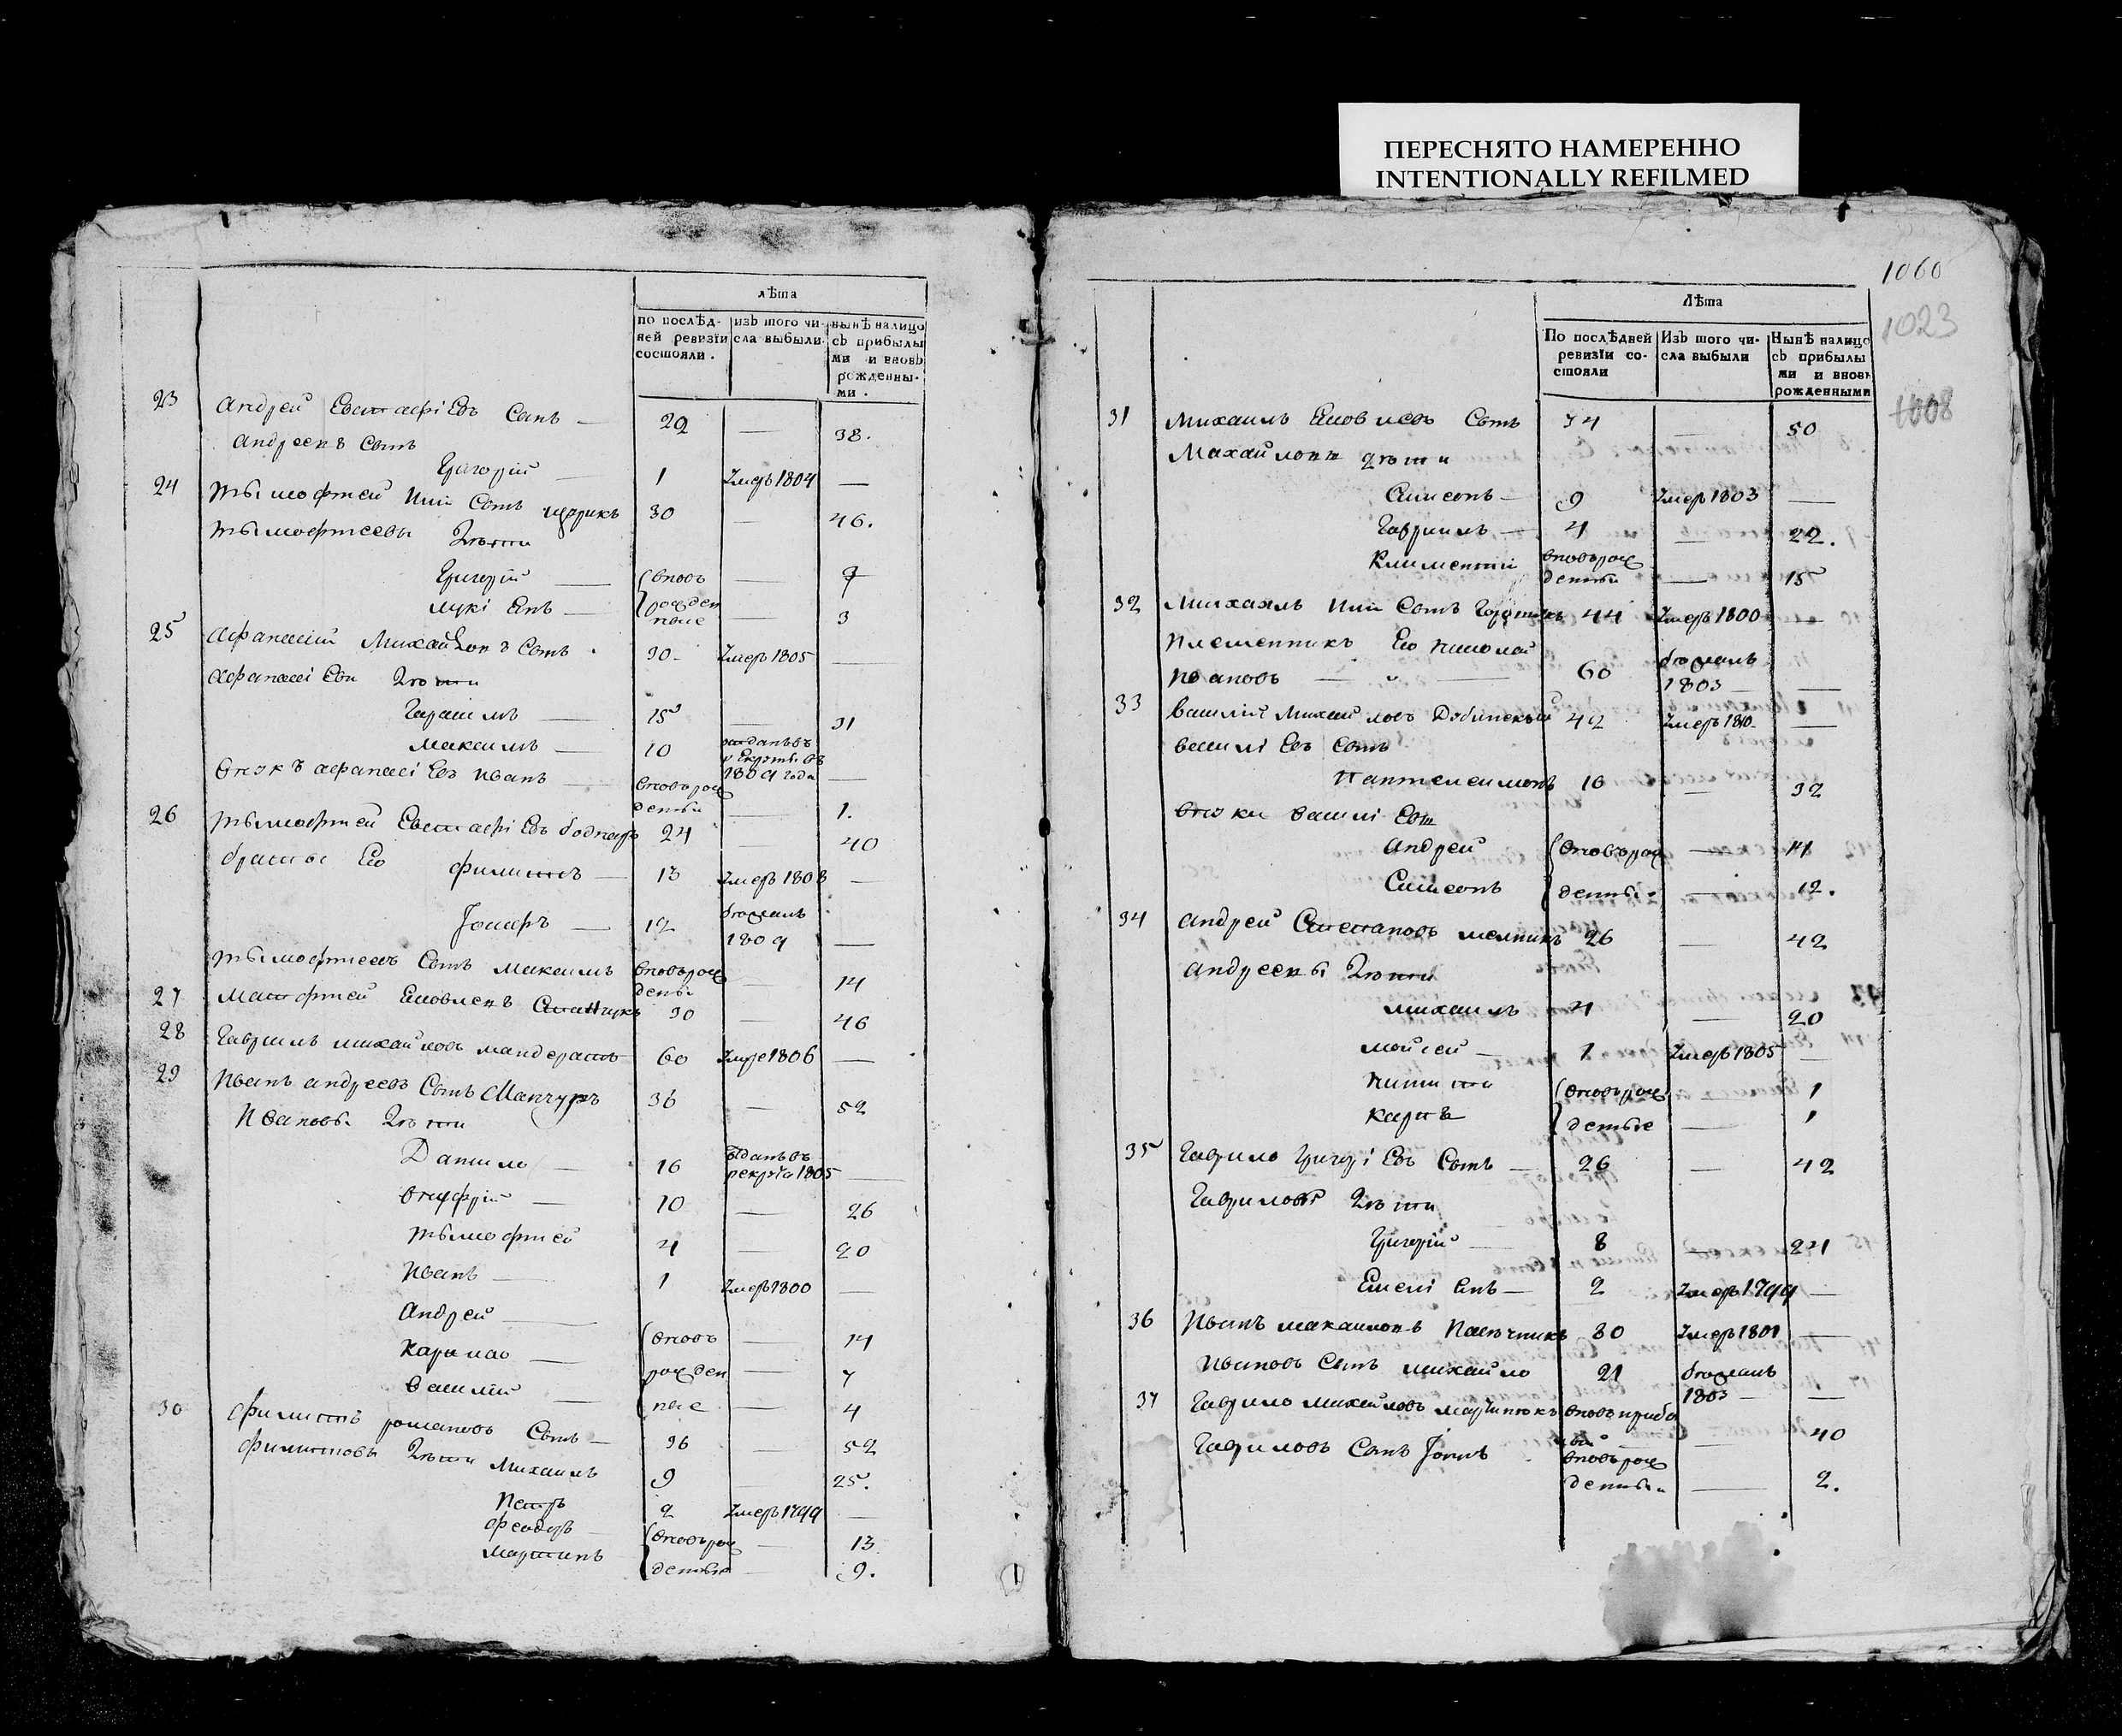 ПЕРЕСНЯТО НАМЕРЕННО
INTENTIONALLY REFILMED
лѣта
по послѣд-
ней ревизіи
состояли.
изъ того чи-
сла выбыли.
нынѣ налицо
съ прибылы
ми и вновь
рожденны-
ми.
23 Андрей Евстафіевъ Сынъ — 22 — 38.
Андреевъ Сынъ
Григорій — 1 Умеръ 1804 —
24 Тымофтей Сынъ 30 — 46.
Тымофтеевы Дѣти
Григорій — вновь — 7
Лукіянъ — рожденные — 3
25 Афанасій Михайловъ Сынъ 30 Умеръ 1805 —
Афанасіеви Дѣти
Гарасимъ — 15 — 31
Максимъ — 10 отданъ въ рекруты въ 1809 года —
Внукъ Афанасіевъ Иванъ — вноворожденный — 1.
26 Тымофтей Евстафіевъ Боднаръ 24 40
Братья Его Филиппъ — 13 Умеръ 1808 —
Іосифъ — 12 бѣжалъ 1809 —
Тымофтеевъ Сынъ Максимъ вноворожденный — 14
27 Матфтей Яковлевъ 30 — 46
28 Гавриилъ Михайловъ 60 Умре 1806 —
29 Иванъ Андреевъ Сынъ Манчуръ 36 — 52
Ивановы Дѣти
Данило — 16 отданъ въ рекруты 1805 —
Онуфрій — 10 — 26
Тымофтей 4 — 20
Иванъ — 1 Умеръ 1800 —
Андрей — вновь — 14
Карпло — рожден — 7
Василій — ные — 4
30 Филиппъ Романовъ Сынъ — 36 — 52
Филипповы Дѣти Михаилъ 9 — 25.
Петръ 2 Умеръ 1799 —
Феодоръ — вноворож — 13
Мартинъ денные — 9.
1060
1023
1008
Лѣта
По послѣдней
ревизіи со-
стояли
Изъ того чи-
сла выбыли
Нынѣ налицо
съ прибылы
ми и вновь
рожденными
31 Михаилъ Яковлевъ Сынъ 34 — 50
Михайловы дѣти
Симеонъ — 9 Умеръ 1803 —
Гавриилъ — 4 — 22.
Климентій вноворожденный — 15
32 Михаилъ Сынъ 44 Умеръ 1800 —
Племенникъ Его Николай
Ивановъ — 60 бѣжалъ 1803 —
33 Василій Михайловъ Дубинскій 42 Умеръ 1810 —
Василіевъ Сынъ
Пантелеимонъ 16 — 32
Внуки Василіеви
Андрей вноворож — 14
Симеонъ денные — 12.
34 Андрей Степановъ Мелникъ 26 — 42
Андреевы Дѣти
Михаилъ 4 — 20
Мойсей — 1 Умеръ 1805 —
Никита вноворож — 1
Карпъ денные — 1
35 Гаврило Григоріевъ Сынъ — 26 — 42
Гавриловы Дѣти
Григорій — 8 — 24
Емеліянъ — 2 Умеръ 1799 —
36 Иванъ Максимовъ Пасѣчникъ 80 Умеръ 1801 —
Ивановъ Сынъ Михайло 21 бѣжалъ 1803 —
37 Гаврило Михайловъ Мартинюкъ вновь прибылый — 40
Гавриловъ Сынъ вноворожденный — 2.